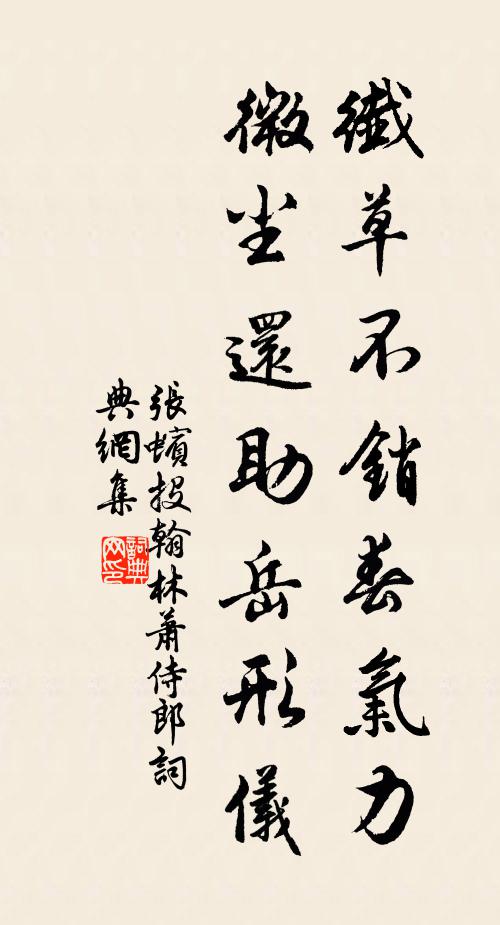 纖草不銷春氣力
微尘還助岳形儀
張蠙投翰林蕭侍郎詞
典網集
詞典网印